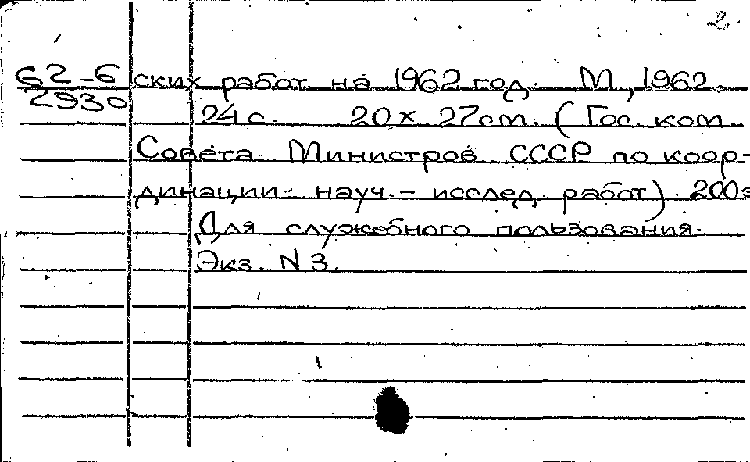 2.
62-6 ских работ на 1962 год. М., 1962.
2930
24 с. 20 х 27 см. (Гос. ком.
Совета Министров СССР по коор-
динации науч.-исслед. работ) 200э
Для служебного пользования.
Экз. N 3.